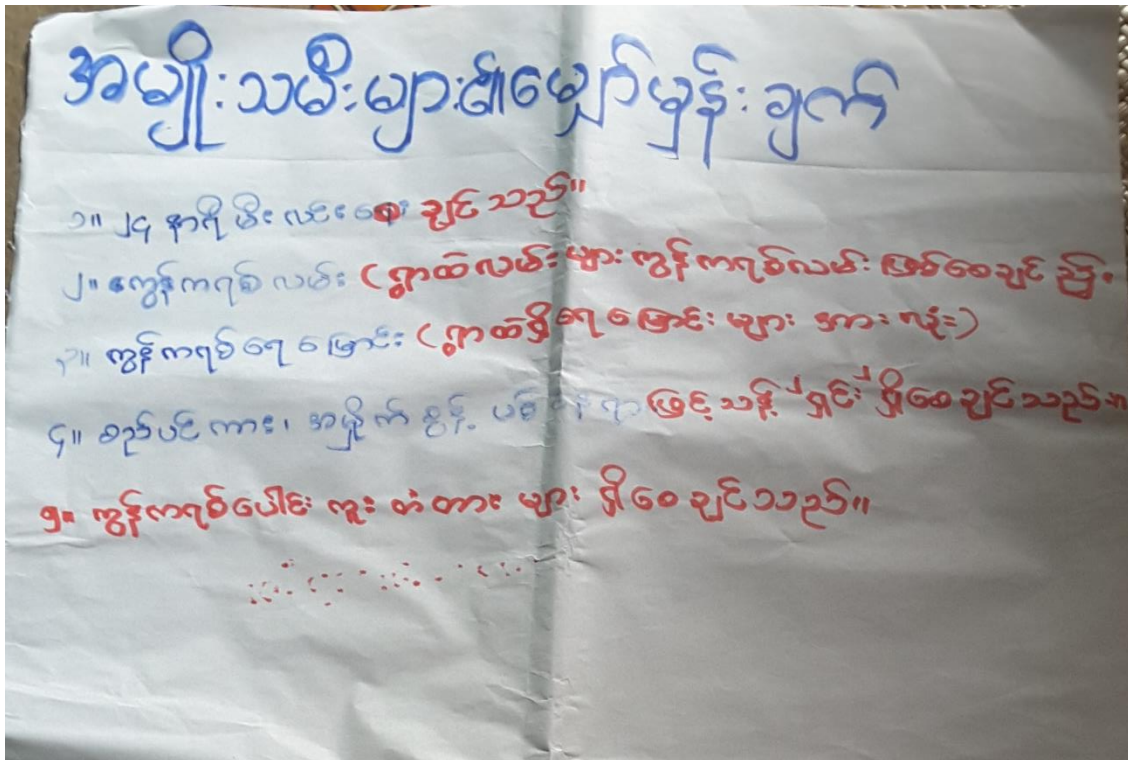 အမျိုးသမီးများ၏မျှော်မှန်းချက်
၁။ ၂၄ နာရီ မီးလင်းစေချင်သည်။
၂။ ကွန်ကရစ်လမ်း (ရွာထဲလမ်းများ ကွန်ကရစ်လမ်း ဖြစ်စေချင်
၃။ ကွန်ကရစ်ရေမြောင်း (ရွာထဲရှိရေမြောင်းများ အားလုံး)
၄။ စည်ပင်ကား၊ အမှိုက်စွန့်ပစ် ဖြင့် သန့်ရှင်းရှိစေချင်သည်။
၅။ ကွန်ကရစ်ပေါင်းကူးတံတားများ ရှိစေချင်သည်။